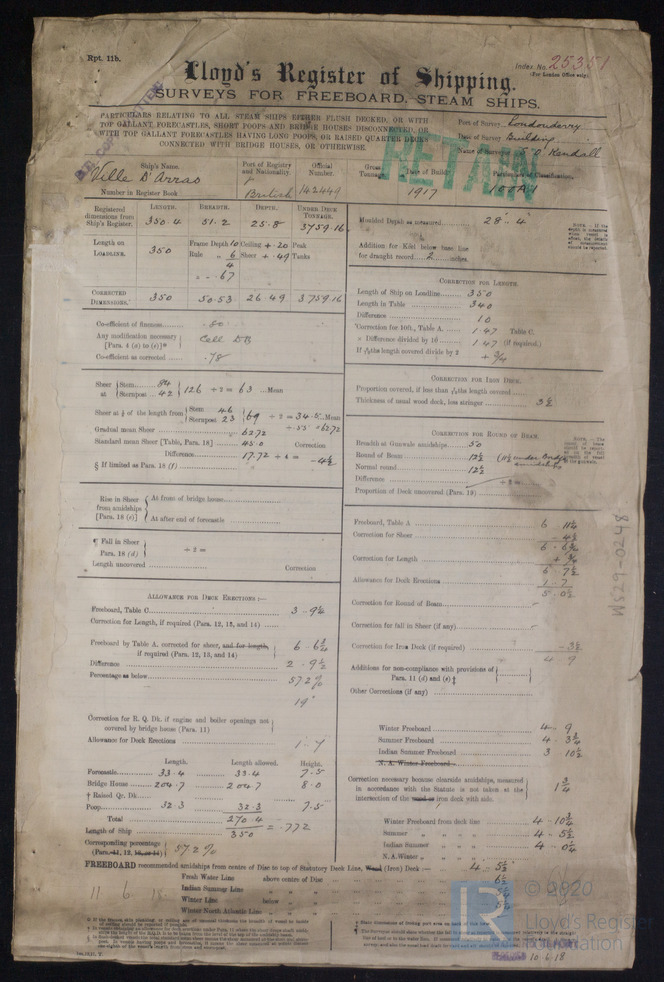 Rpt. 11b.
Index. No. 25351
(For London Office only)
Lloyd's Register of Shipping.
SURVEYS FOR FREEBOARD. STEAM SHIPS.
PARTICULARS RELATING TO ALL STEAM SHIPS EITHER FLUSH DECKED, OR WITH
TOP GALLANT FORECASTLES, SHORT POOPS AND BRIDGE HOUSES DISCONNECTED, OR
WITH TOP GALLANT FORECASTLES HAVING LONG POOPS, OR RAISED QUARTER DECKS
CONNECTED WITH BRIDGE HOUSES, OR OTHERWISE.
Port of Survey Londonderry
Date of Survey Building
Name of Surveyor Kendall
RETAIN
Ship's Name.
Port of Registry and Nationality.
Official Number.
Gross Tonnage
Date of Build
Particulars of Classification.
Ville D'Arras
British
142449
1917
100A1
Number in Register Book
Registered dimensions from Ship's Register.
LENGTH. BREADTH. DEPTH. UNDER DECK TONNAGE.
350.4 51.2 25.8 3759.16
Length on LOADLINE. 350
Frame Depth 10 Ceiling + .20 Peak
Rule „ 6 Sheer + .49 Tanks
4
.67
CORRECTED DIMENSIONS. 350 50.53 26.49 3759.16
Moulded Depth as measured 28" 4"
Addition for Keel below base line
for draught record 2 inches.
CORRECTION FOR LENGTH.
Length of Ship on Loadline 350
Length in Table 340
Difference 10
Correction for 10ft., Table A. 1.47 Table C.
„ Difference divided by 10 1.47 (if required.)
If 6/10ths length covered divide by 2 + 3/4
Co-efficient of fineness .80
Any modification necessary
[Para. 4 (a) to (e)]* Cell DB
Co-efficient as corrected .78
CORRECTION FOR IRON DECK.
Proportion covered, if less than 7/10ths length covered
Thickness of usual wood deck, less stringer 3½
Sheer at Stem 84
Sternpost 42 126 ÷ 2 = 63 Mean
Sheer at ⅛ of the length from Stem 46
Sternpost 23 69 ÷ 2 = 34.5 Mean
Gradual mean Sheer 62.72
Standard mean Sheer [Table, Para. 18] 45.0 Correction
Difference 17.72 ÷ 4 = -4½
§ If limited as Para. 18 (f)
CORRECTION FOR ROUND OF BEAM.
Breadth at Gunwale amidships 50
Round of Beam 12½
Normal round 12½
Difference ÷ 2 =
Proportion of Deck uncovered (Para. 19)
Rise in Sheer
from amidships
[Para. 18 (e)]
At front of bridge house
At after end of forecastle
¶ Fall in Sheer
Para. 18 (d) ÷ 2 =
Length uncovered Correction
Freeboard, Table A 6 11¼
Correction for Sheer - 4½
6 . 6¾
Correction for Length + ¾
6 . 7½
Allowance for Deck Erections 1 . 7
5 . 0½
Correction for Round of Beam
Correction for fall in Sheer (if any)
Correction for Iron Deck (if required) - 3½
4 9
Additions for non-compliance with provisions of
Para. 11 (d) and (e) ‡
Other Corrections (if any)
ALLOWANCE FOR DECK ERECTIONS :—
Freeboard, Table C 3 . 9½
Correction for Length, if required (Para. 12, 13, and 14)
Freeboard by Table A, corrected for sheer, and for length,
if required (Para. 12, 13, and 14) 6 . 6¾
Difference 2 . 9½
Percentage as below 57.2%
19"
Correction for R. Q. Dk. if engine and boiler openings not
covered by bridge house (Para. 11)
Allowance for Deck Erections 1 . 7
Length. Length allowed. Height.
Forecastle 33.4 33.4 7.5
Bridge House 204.7 204.7 8.0
† Raised Qr. Dk.
Poop 32.3 32.3 7.5
Total 270.4
Length of Ship 350 = .772
Corresponding percentage
(Para. 11, 12, 13, or 14) 57.2%
Winter Freeboard 4 . 9
Summer Freeboard 4 . 3¾
Indian Summer Freeboard 3 10½
N. A. Winter Freeboard
Correction necessary because clearside amidships, measured
in accordance with the Statute is not taken at the
intersection of the wood or iron deck with side. 1¾
Winter Freeboard from deck line 4 . 10¾
Summer „ „ „ 4 . 5½
Indian Summer „ „ „ 4 . 0¼
N. A. Winter „ „ „
FREEBOARD recommended amidships from centre of Disc to top of Statutory Deck Line, Wood (Iron) Deck :— 4 . 5½
Fresh Water Line above centre of Disc
Indian Summer Line „ „
Winter Line below „
Winter North Atlantic Line „
11 . 6 . 18
10 6 18
W529-0248
© 2020
Lloyd's Register
Foundation
LR